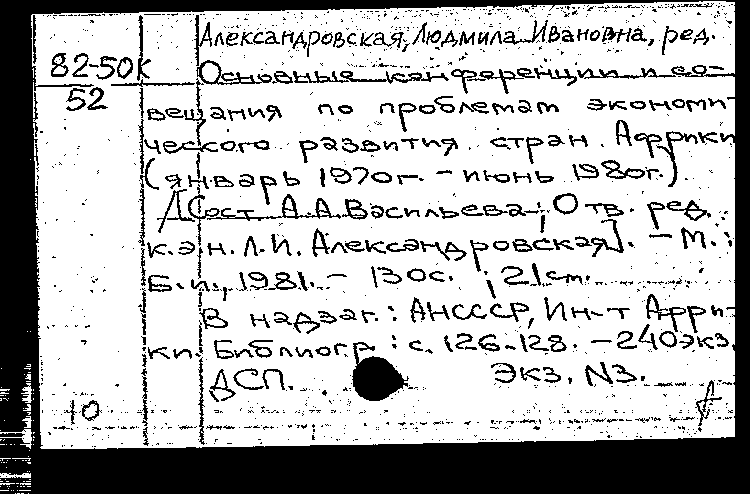 Александровская, Людмила Ивановна, ред.
82-50к
52
Основные конференции и со-
вещания по проблемам экономи-
ческого развития стран Африки
(январь 1970г. - июнь 1980г.).
/[Сост. А.А.Васильева; Отв. ред.
к.э.н. Л.И. Александровская]. - М.:
Б.и., 1981. - 130с. ; 21см.
В надзаг.: АНСССР, Ин-т Афри-
ки. Библиогр.: с. 126-128. - 240экз.
ДСП. Экз. N3.
10